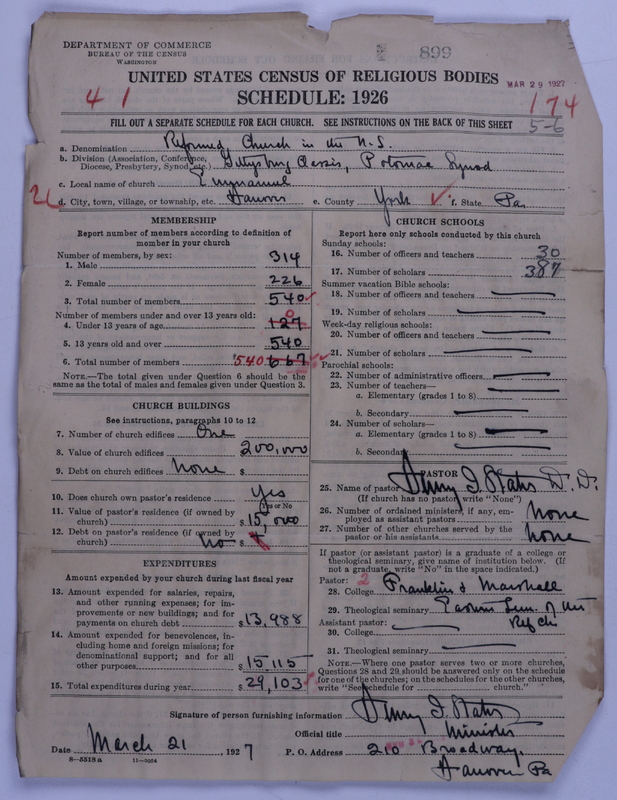 DEPARTMENT OF COMMERCE
BUREAU OF THE CENSUS
WASHINGTON
899
UNITED STATES CENSUS OF RELIGIOUS BODIES
MAR 29 1927
4 1
SCHEDULE: 1926
174
FILL OUT A SEPARATE SCHEDULE FOR EACH CHURCH. SEE INSTRUCTIONS ON THE BACK OF THIS SHEET
5-6
a. Denomination Reformed Church in the U.S.
b. Division (Association, Conference, Diocese, Presbytery, Synod, etc.) Gettysburg Classis, Potomac Synod
c. Local name of church Emmanuel
d. City, town, village, or township, etc. Hanover e. County York f. State Pa.
MEMBERSHIP
Report number of members according to definition of
member in your church
Number of members, by sex:
1. Male 314
2. Female 226
3. Total number of members 540
Number of members under and over 13 years old:
4. Under 13 years of age 127 0
5. 13 years old and over 540
6. Total number of members 540 667
NOTE.—The total given under Question 6 should be the
same as the total of males and females given under Question 3.
CHURCH BUILDINGS
See instructions, paragraphs 10 to 12
7. Number of church edifices One
8. Value of church edifices 200,000
9. Debt on church edifices None $
10. Does church own pastor's residence Yes
Yes or No
11. Value of pastor's residence (if owned by
church) $ 15,000
12. Debt on pastor's residence (if owned by
church) No $
EXPENDITURES
Amount expended by your church during last fiscal year
13. Amount expended for salaries, repairs,
and other running expenses; for im-
provements or new buildings; and for
payments on church debt $ 13,988
14. Amount expended for benevolences, in-
cluding home and foreign missions; for
denominational support; and for all
other purposes $ 15,115
15. Total expenditures during year $ 29,103
CHURCH SCHOOLS
Report here only schools conducted by this church
Sunday schools:
16. Number of officers and teachers 30
17. Number of scholars 387
Summer vacation Bible schools:
18. Number of officers and teachers
19. Number of scholars
Week-day religious schools:
20. Number of officers and teachers
21. Number of scholars
Parochial schools:
22. Number of administrative officers
23. Number of teachers—
a. Elementary (grades 1 to 8)
b. Secondary
24. Number of scholars—
a. Elementary (grades 1 to 8)
b. Secondary
PASTOR
25. Name of pastor D.D.
(If church has no pastor write "None")
26. Number of ordained ministers, if any, em-
ployed as assistant pastors None
27. Number of other churches served by the
pastor or his assistants None
If pastor (or assistant pastor) is a graduate of a college or
theological seminary, give name of institution below. (If
not a graduate, write "No" in the space indicated.)
Pastor: 2
28. College Franklin & Marshall
29. Theological seminary Eastern Sem. of the
Ref Ch
Assistant pastor:
30. College
31. Theological seminary
NOTE.—Where one pastor serves two or more churches,
Questions 28 and 29 should be answered only on the schedule
for one of the churches; on the schedules for the other churches,
write "See schedule for church."
Signature of person furnishing information
Official title Minister
Date March 21 , 1927 P. O. Address 210 Broadway,
8—5518 a 11—5064
Hanover Pa